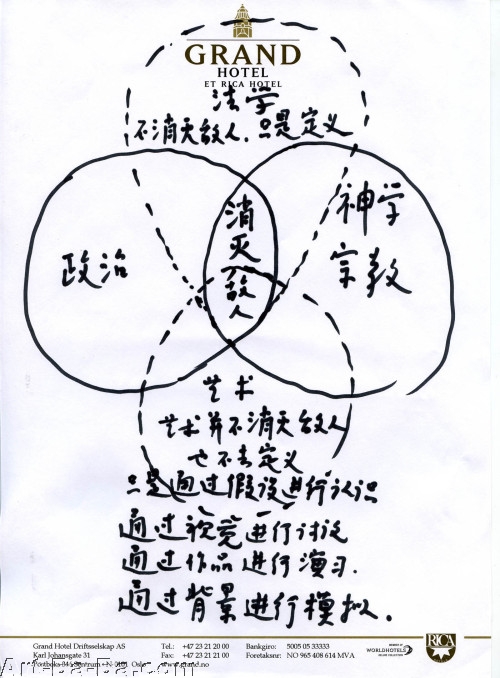 GRAND
HOTEL
ET RICA HOTEL
法学
不消灭敌人,只是定义
政治
消灭敌人
神学
宗教
艺术
艺术并不消灭敌人
也不去定义
只是通过假设进行认识
通过视觉进行讨论
通过作品进行演习.
通过背景进行模拟.
Grand Hotel Driftsselskap AS
Karl Johansgate 31
Postboks 346 Sentrum • N-0101 Oslo
Tel.: +47 23 21 20 00
Fax: +47 23 21 21 00
www.grand.no
Bankgiro: 5005 05 33333
Foretaksnr: NO 965 408 614 MVA
WORLDHOTELS
RICA
Art-Ba-Ba.com